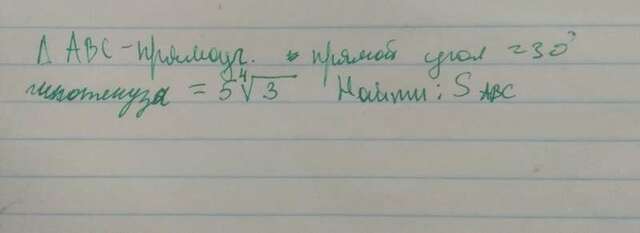 Δ ABC - прямоуг. прямой угол = 30°
гипотенуза = 5∜3 Найти: S ABC